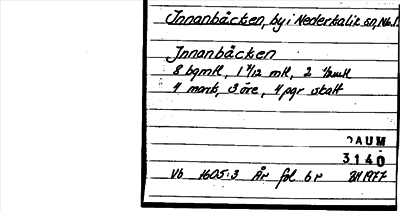 Innanbäcken, by i Nederkalix sn, Nb.l.
Innanbäcken
8 bgmtl, 1 7/12 mtl, 2 1/2mtl
4 mark, 3 öre, 4 pgr skatt
DAUM
3140
Vb 1605:3 År fol 6r